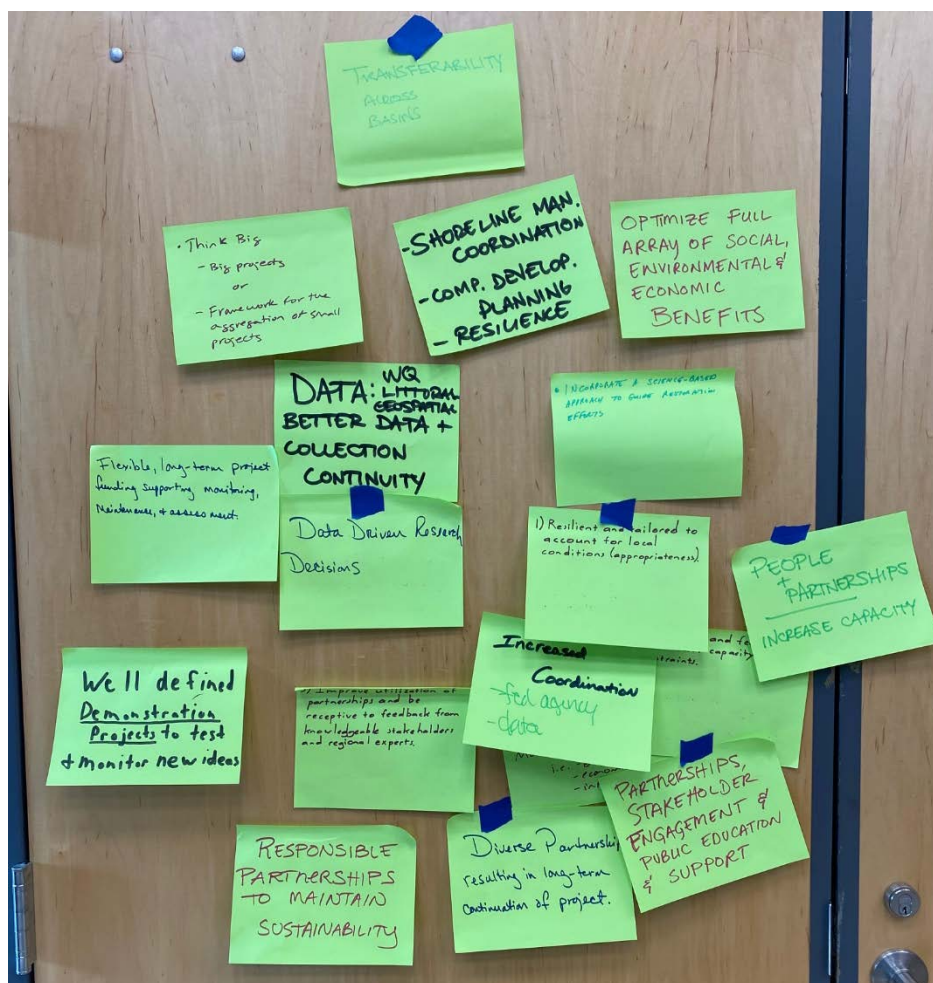 TRANSFERABILITY
ACROSS
BASINS
• Think Big
- Big projects
or
- Framework for the
aggregation of small
projects
- SHORELINE MAN.
COORDINATION
- COMP. DEVELOP.
PLANNING
- RESILIENCE
OPTIMIZE FULL
ARRAY OF SOCIAL,
ENVIRONMENTAL &
ECONOMIC
BENEFITS
DATA: WQ
LITTORAL
GEOSPATIAL
BETTER DATA +
COLLECTION
CONTINUITY
• INCORPORATE A SCIENCE-BASED
APPROACH TO GUIDE RESTORATION
EFFORTS
Flexible, long-term project
funding supporting monitoring,
maintenance, & assessment.
Data Driven Research
Decisions
1) Resilient and tailored to
account for local
conditions (appropriateness).
PEOPLE
+
PARTNERSHIPS
INCREASE CAPACITY
We'll defined
Demonstration
Projects to test
+ monitor new ideas
Improve utilization of
partnerships and be
receptive to feedback from
knowledgeable stakeholders
and regional experts.
Increased
Coordination
- fed agency
- data
and
capacity
i.e.
PARTNERSHIPS,
STAKEHOLDER
ENGAGEMENT &
PUBLIC EDUCATION
& SUPPORT
RESPONSIBLE
PARTNERSHIPS
TO MAINTAIN
SUSTAINABILITY
Diverse Partnership
resulting in long-term
continuation of project.